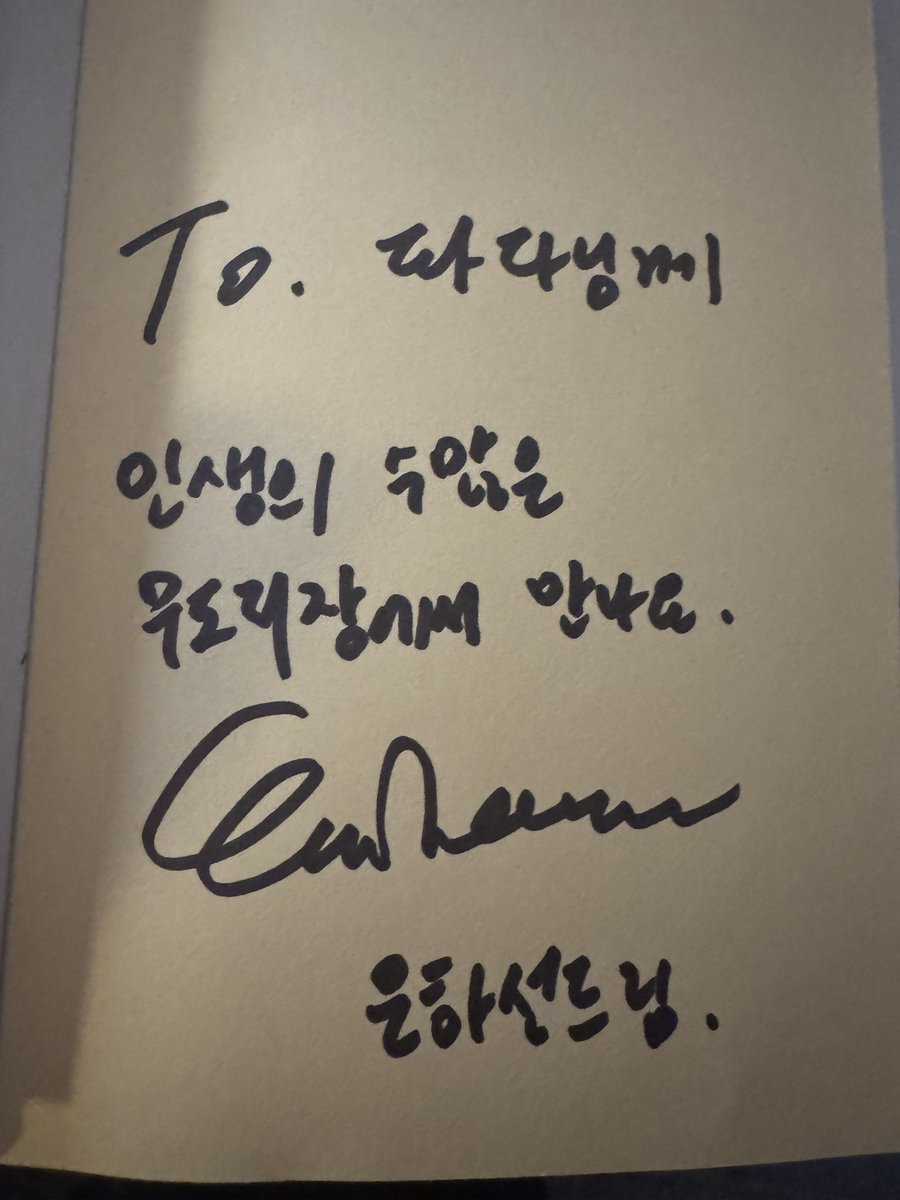 To. 따다님께
인생의 수많은
무도회장에서 만나요.
은하선드림.